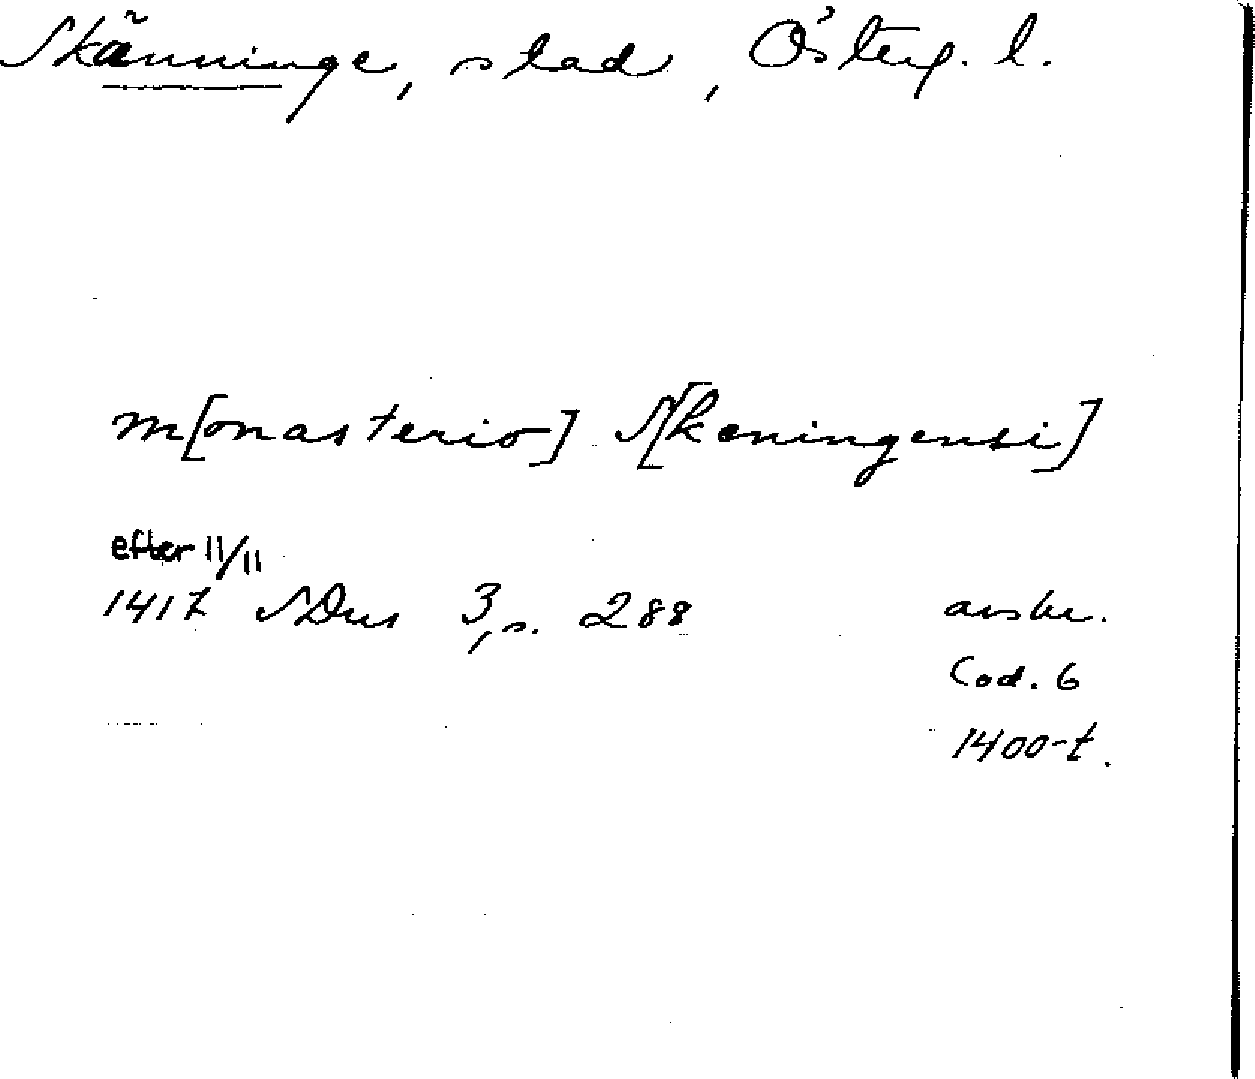 Skänninge, stad, Österg. l.
m[onasterio] S[keningensi]
efter 11/11
1417 SDns 3, s. 288 avskr.
Cod. 6
1400-t.